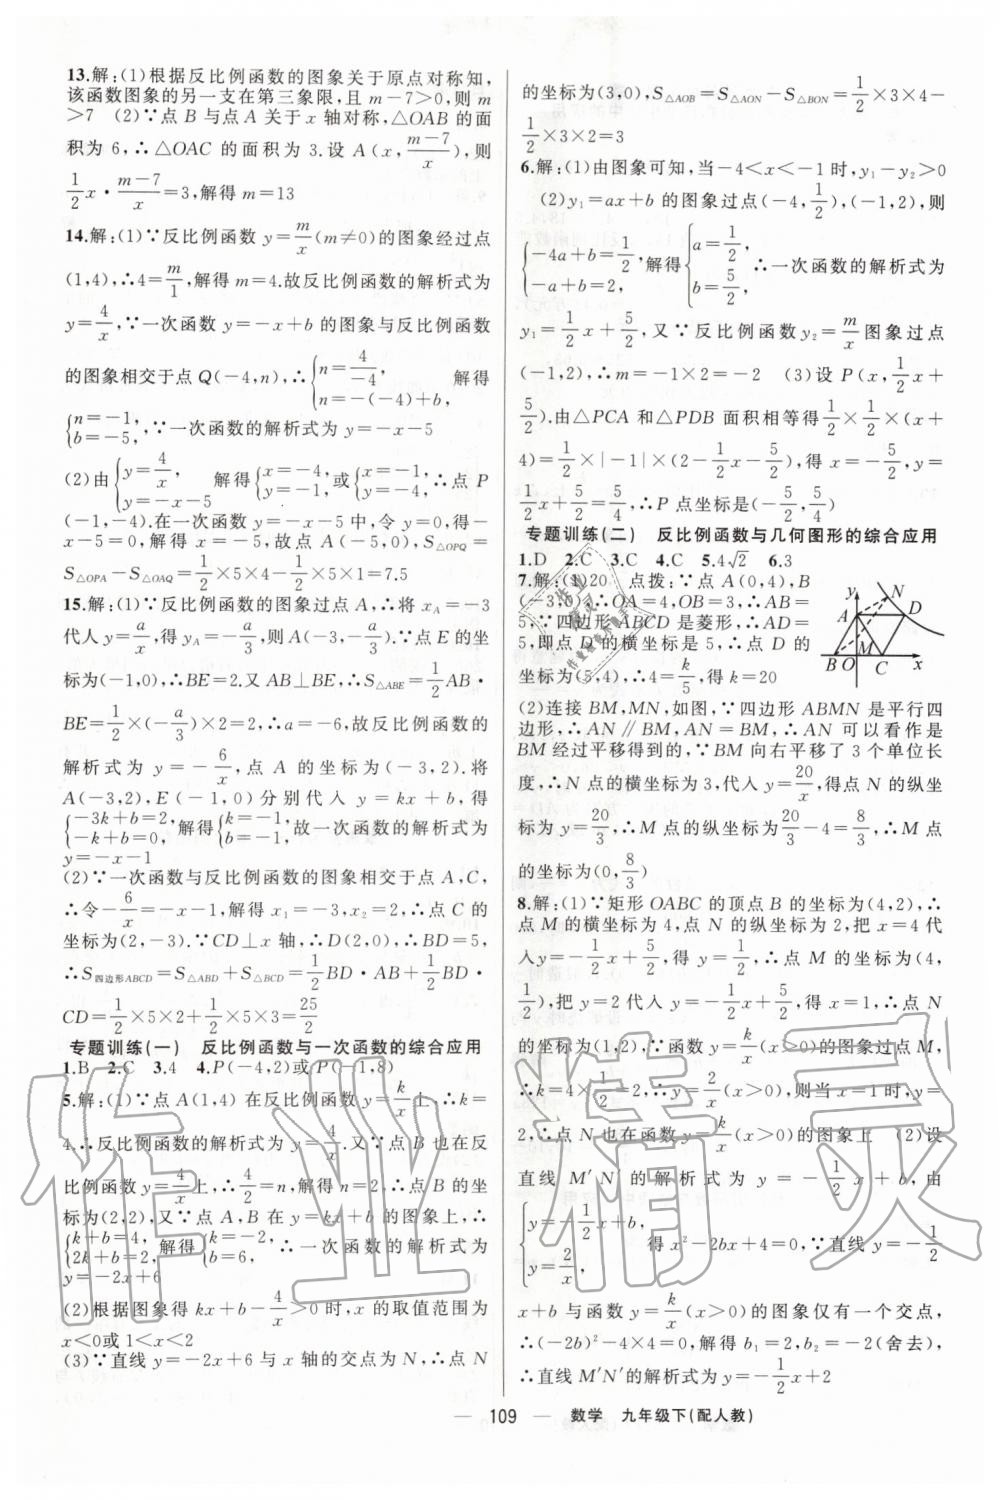 13.解:(1)根据反比例函数的图象关于原点对称知,
该函数图象的另一支在第三象限,且 m-7>0,则 m
>7 (2)∵点 B 与点 A 关于 x 轴对称,△OAB 的面
积为 6,∴△OAC 的面积为 3.设 A(x,(m-7)/x),则
1/2 x·(m-7)/x=3,解得 m=13
14.解:(1)∵反比例函数 y=m/x(m≠0)的图象经过点
(1,4),∴4=m/1,解得 m=4.故反比例函数的解析式为
y=4/x,∵一次函数 y=-x+b 的图象与反比例函数
的图象相交于点 Q(-4,n),∴{n=4/-4, n=-(-4)+b, 解得
{n=-1, b=-5,∴一次函数的解析式为 y=-x-5
(2)由{y=4/x, y=-x-5 解得{x=-4, y=-1,或{x=-1, y=-4,∴点 P
(-1,-4).在一次函数 y=-x-5 中,令 y=0,得-
x-5=0,解得 x=-5,故点 A(-5,0),S△OPQ=
S△OPA-S△OAQ=1/2×5×4-1/2×5×1=7.5
15.解:(1)∵反比例函数的图象过点 A,∴将 xA=-3
代人 y=a/x,得 yA=-a/3,则 A(-3,-a/3).∵点 E 的坐
标为(-1,0),∴BE=2.又 AB⊥BE,∴S△ABE=1/2AB·
BE=1/2×(-a/3)×2=2,∴a=-6,故反比例函数的
解析式为 y=-6/x,点 A 的坐标为(-3,2).将
A(-3,2),E(-1,0)分别代人 y=kx+b,得
{-3k+b=2, -k+b=0,解得{k=-1, b=-1,故一次函数的解析式为
y=-x-1
(2)∵一次函数与反比例函数的图象相交于点 A,C,
∴令-6/x=-x-1,解得 x1=-3,x2=2,∴点 C 的
坐标为(2,-3).∵CD⊥x 轴,∴D(2,0),∴BD=5,
∴S四边形ABCD=S△ABD+S△BCD=1/2BD·AB+1/2BD·
CD=1/2×5×2+1/2×5×3=25/2
专题训练(一) 反比例函数与一次函数的综合应用
1.B 2.C 3.4 4.P(-4,2)或 P(-1,8)
5.解:(1)∵点 A(1,4)在反比例函数 y=k/x上,∴k=
4.∴反比例函数的解析式为 y=4/x.又∵点 B 也在反
比例函数 y=4/x上,∴4/2=n,解得 n=2,∴点 B 的坐
标为(2,2),又∵点 A,B 在 y=kx+b 的图象上,∴
{k+b=4, 2k+b=2,解得{k=-2, b=6,∴一次函数的解析式为
y=-2x+6
(2)根据图象得 kx+b-4/x>0 时,x 的取值范围为
x<0或 1<x<2
(3)∵直线 y=-2x+6 与 x 轴的交点为 N,∴点 N
的坐标为(3,0),S△AOB=S△AON-S△BON=1/2×3×4-
1/2×3×2=3
6.解:(1)由图象可知,当-4<x<-1 时,y1-y2>0
(2)y1=ax+b 的图象过点(-4,1/2),(-1,2),则
{-4a+b=1/2, -a+b=2,解得{a=1/2, b=5/2, ∴一次函数的解析式为
y1=1/2x+5/2,又∵反比例函数 y2=m/x图象过点
(-1,2),∴m=-1×2=-2 (3)设 P(x,1/2x+
5/2).由△PCA 和△PDB 面积相等得1/2×1/2×(x+
4)=1/2×|-1|×(2-1/2x-5/2),得 x=-5/2,y=
1/2x+5/2=5/4,∴P 点坐标是(-5/2,5/4)
专题训练(二) 反比例函数与几何图形的综合应用
1.D 2.C 3.C 4.C 5.4√2 6.3
7.解:(1)20 点拨:∵点 A(0,4),B
(-3,0),∴OA=4,OB=3,∴AB=
5,∵四边形 ABCD 是菱形,∴AD=
5,即点 D 的横坐标是 5,∴点 D 的
坐标为(5,4),∴4=k/5,得 k=20
y N A D M B O C x
(2)连接 BM,MN,如图,∵四边形 ABMN 是平行四
边形,∴AN∥BM,AN=BM,∴AN 可以看作是
BM 经过平移得到的,∵BM 向右平移了 3 个单位长
度,∴N 点的横坐标为 3,代人 y=20/x,得点 N 的纵坐
标为 y=20/3,∴M 点的纵坐标为20/3-4=8/3,∴M 点
的坐标为(0,8/3)
8.解:(1)∵矩形 OABC 的顶点 B 的坐标为(4,2),∴
点 M 的横坐标为 4,点 N 的纵坐标为 2,把 x=4 代
人y=-1/2x+5/2,得 y=1/2,∴点 M 的坐标为(4,
1/2),把 y=2 代入 y=-1/2x+5/2,得 x=1,∴点 N
的坐标为(1,2),∵函数 y=k/x(x>0)的图象过点 M,
∴k=4×1/2=2,∴y=2/x(x>0),则当 x=1 时,y=
2,∴点 N 也在函数 y=k/x(x>0)的图象上 (2)设
直线 M′N′的解析式为 y=-1/2x+b,由
{y=-1/2x+b, y=2/x, 得 x²-2bx+4=0,∵直线 y=-1/2
x+b 与函数 y=k/x(x>0)的图象仅有一个交点,
∴(-2b)²-4×4=0,解得 b1=2,b2=-2(舍去),
∴直线 M′N′的解析式为 y=-1/2x+2
109 数学 九年级下(配人教)
作业精灵